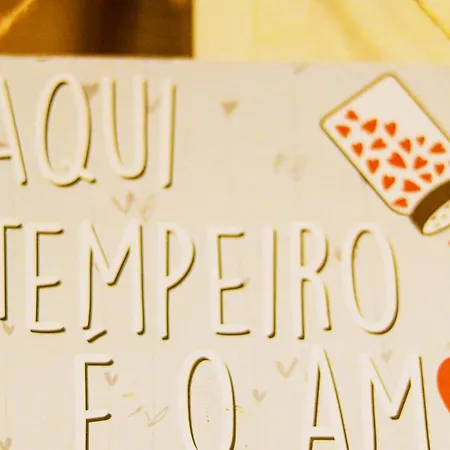 AQUI
TEMPEIRO
É O AM